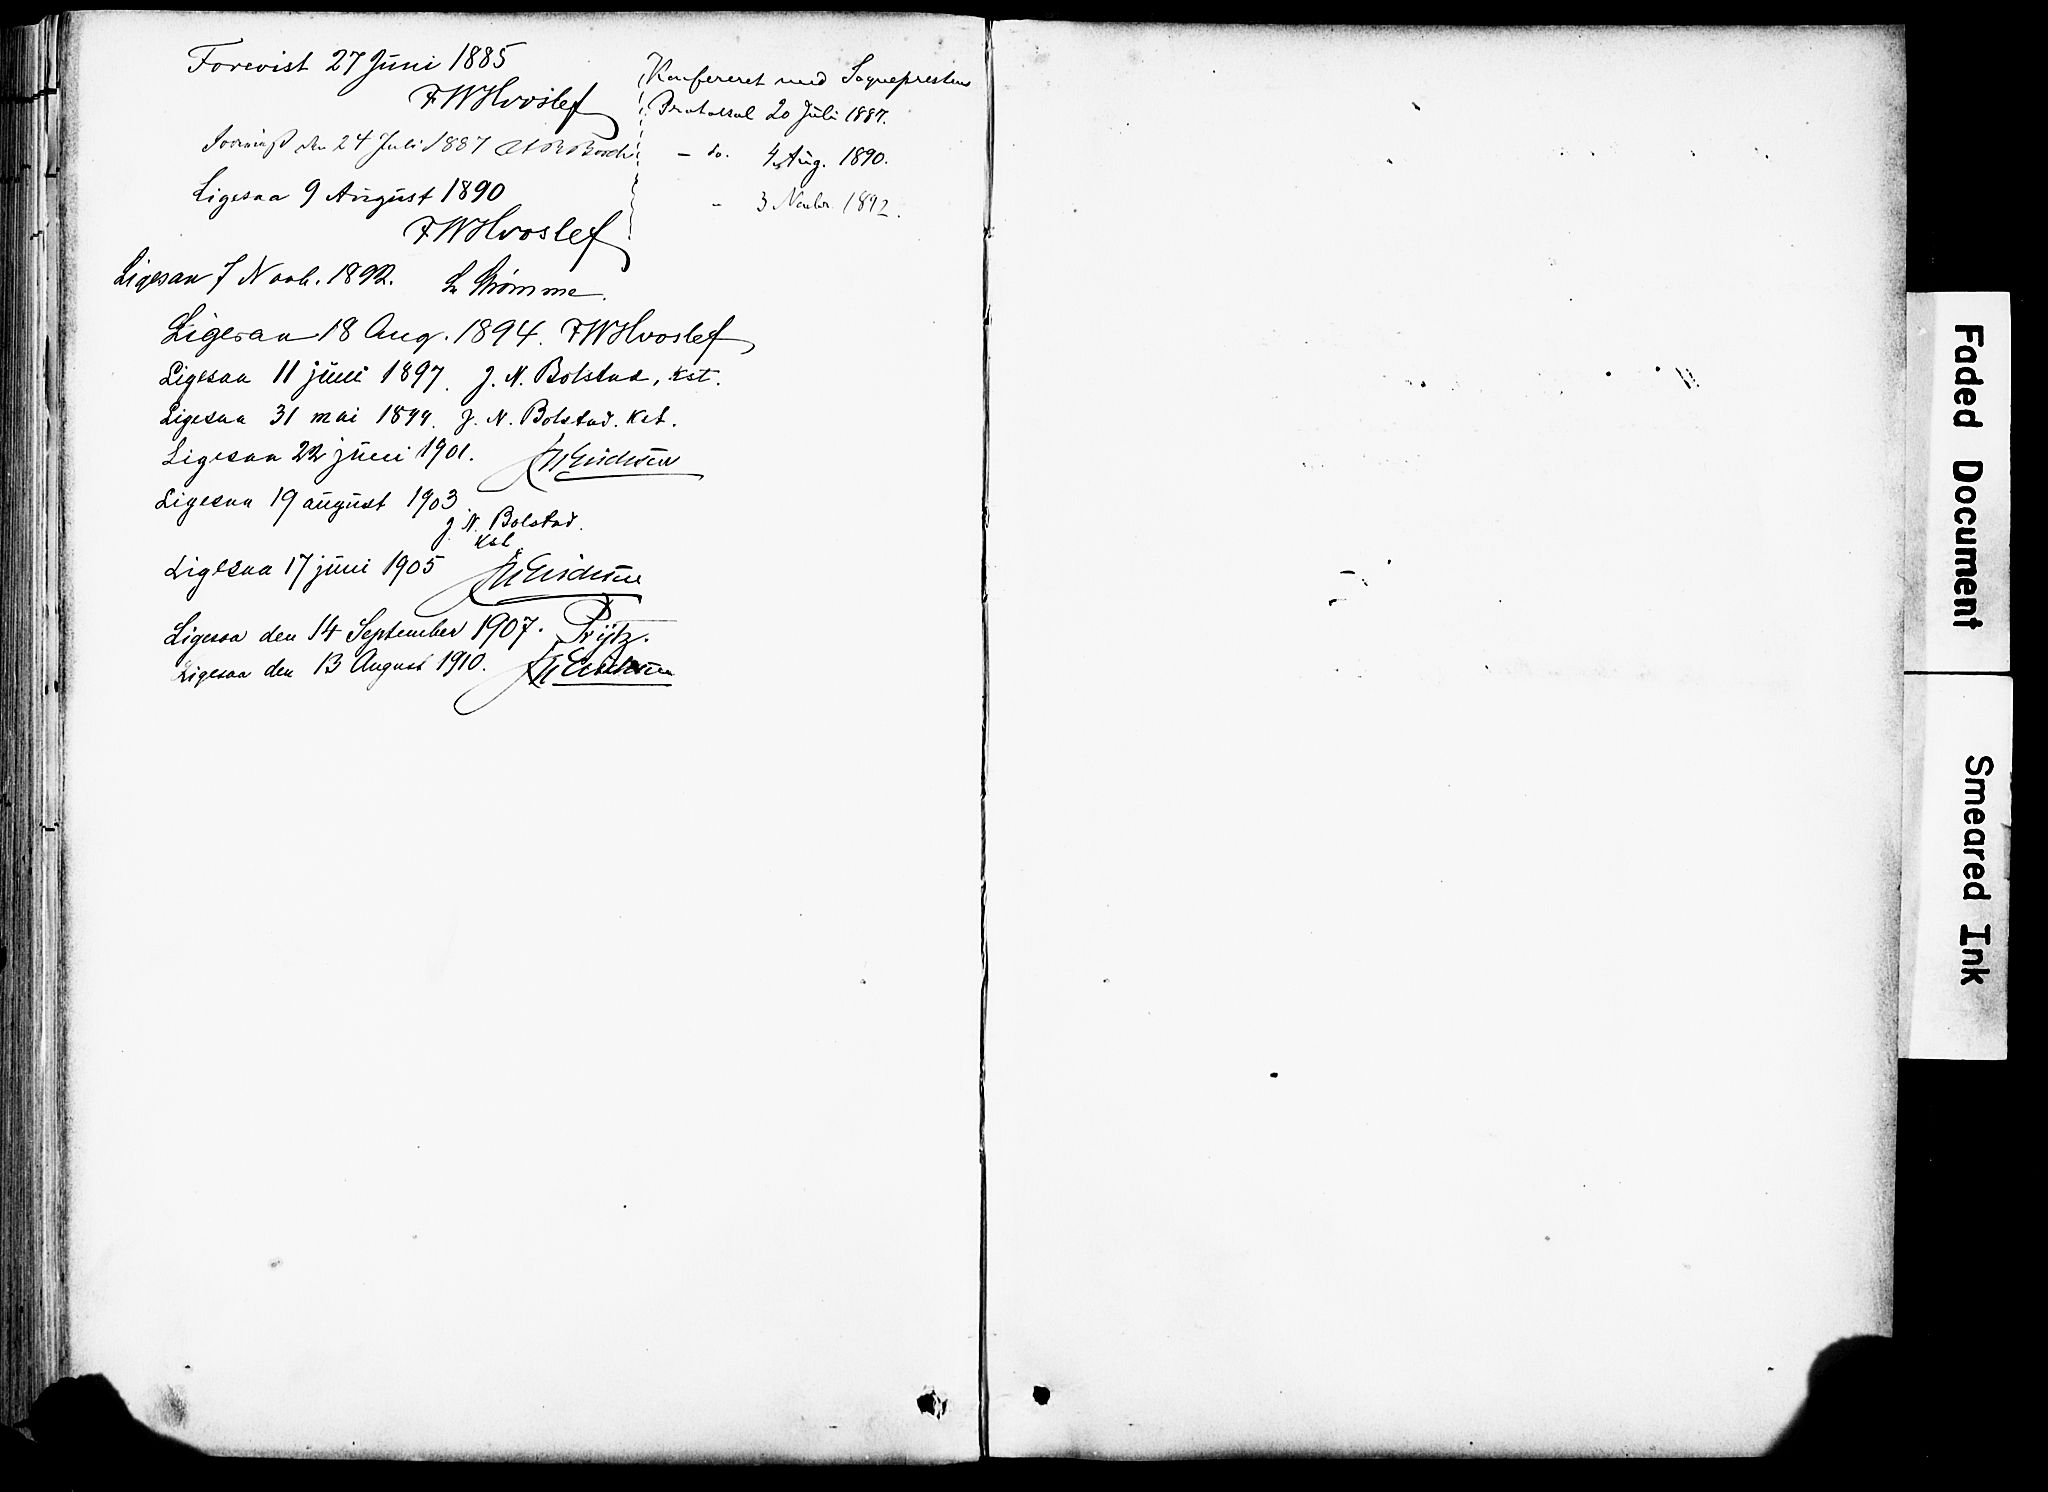 Forevist 27 Juni 1885
FWHvoslef
Forevist den 24 Juli 1887
Ligesaa 9 August 1890
FWHvoslef
Ligesaa 7 Novb. 1892. Strømme.
Ligesaa 18 Aug. 1894. FWHvoslef
Ligesaa 11 juni 1897. J. N. Bolstad, kst.
Ligesaa 31 mai 1899. J. N. Bolstad. kst.
Ligesaa 22 juni 1901.
Ligesaa 19 august 1903
J. N. Bolstad.
kst.
Ligesaa 17 juni 1905
Ligesaa den 14 September 1907. Prytz.
Ligesaa den 13 August 1910.
Konfereret med Sognepresten
Protokol 20 Juli 1887.
- do. 4 Aug. 1890.
- 3 Novbr. 1892.
Faded Document
Smeared Ink